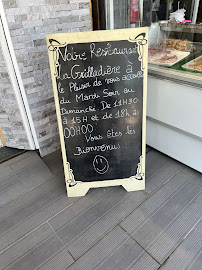 Notre Restaurant
La Grilladière à
le Plaisir de vous accueillir
du Mardi Soir au
Dimanche De 11H30
à 15H et de 18h à
00H00
Vous êtes les
Bienvenus